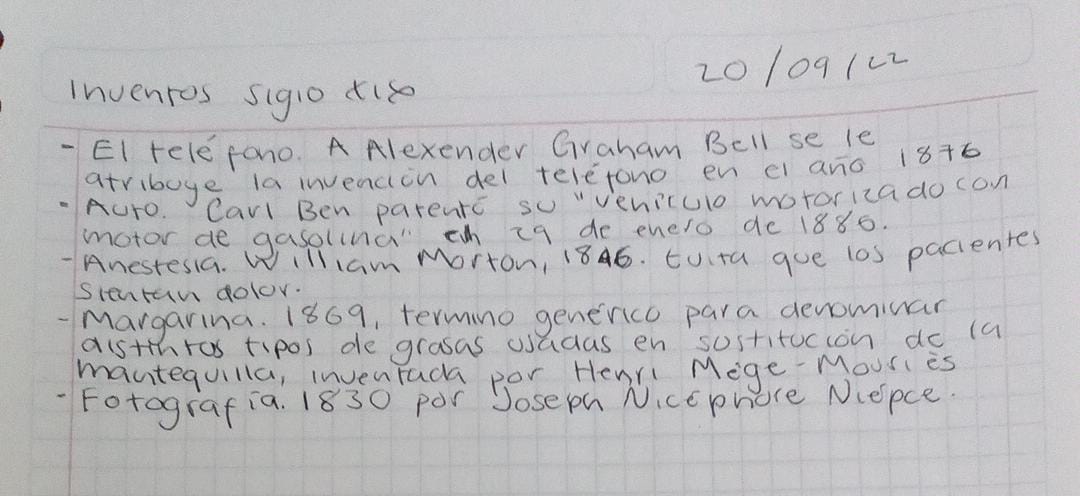 Inventos siglo XIX
20/09/22
- El teléfono. A Alexender Graham Bell se le
atribuye la invención del teléfono en el año 1876
- Auto. Carl Ben patentó su "vehículo motorizado con
motor de gasolina" en 29 de enero de 1886.
- Anestesia. William Morton, 1846. Evita que los pacientes
sientan dolor.
- Margarina. 1869, termino genérico para denominar
distintos tipos de grasas usadas en sustitución de la
mantequilla, inventada por Henri Mège-Mouriès
- Fotografía. 1830 por Joseph Nicéphore Niépce.